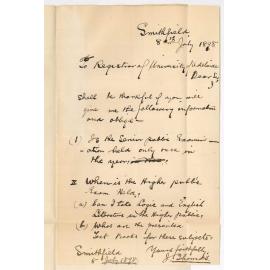 Smithfield
8th July 1898
To Registrar of University Adelaide
Dear Sir
Shall be thankful if you will
give me the following information
and oblige
(1) Is the Senior public Examin-
ation held only once in
the year
II When is the Higher public
Exam Held,
(a) Can I take Logic and English
Literature in the Higher public,
(b) What are the prescribed
Text Books for these subjects
Yours faithfully
Smithfield
8 July 1898